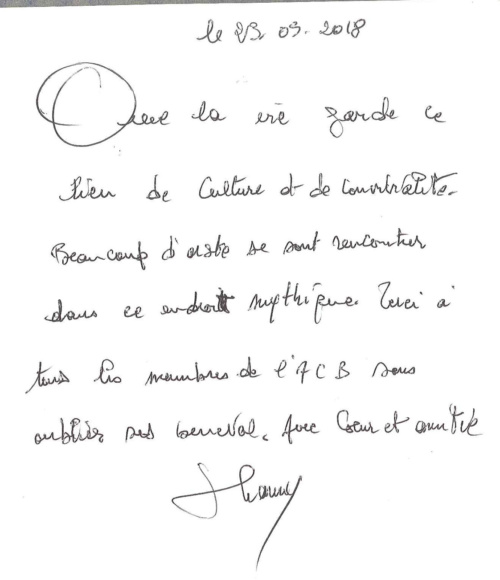 le 23. 03. 2018
Que la vie garde ce
lieu de Culture et de convivialité.
Beaucoup d'artste se sont rencontrer
dans ce endroit mythique. Merci à
tous les membres de l'ACB sans
oublier ses benevol. Avec Coeur et amitié